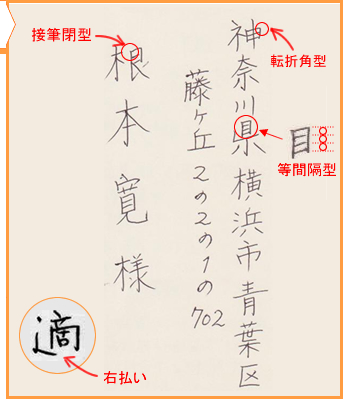 神奈川県横浜市青葉区
藤ヶ丘2の2の1の702
根本寛様
接筆閉型
転折角型
目
等間隔型
適
右払い